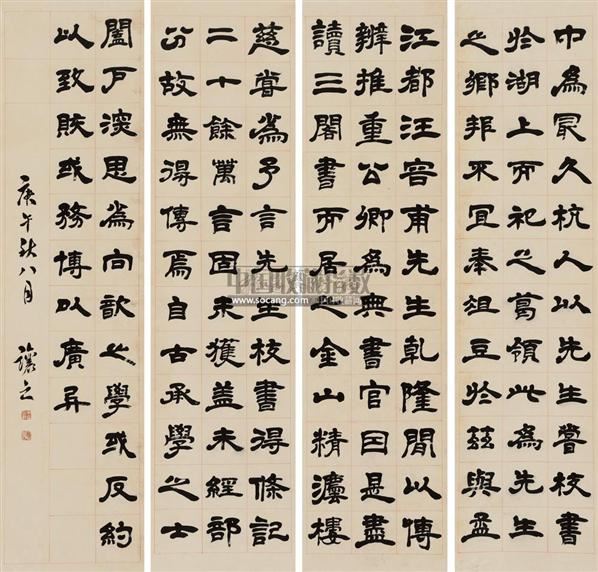 中為冣久杭人以先生嘗校書
於湖上而祀之葛領此為先生
之鄉邦不宜奉俎豆於茲與孟
江都汪容甫先生乾隆間以傳
辨推重公卿為典書官因是盡
讀三閣書而居之金山精濾樓
慈嘗為予言先生校書得條記
二十餘萬言固未獲盖未經部
分故無得傳焉自古承學之士
闔戶湥思為向歆之學或反約
以致賅或務博以廣异
庚午秋八月 讓之
中国收藏指数
www.socang.com